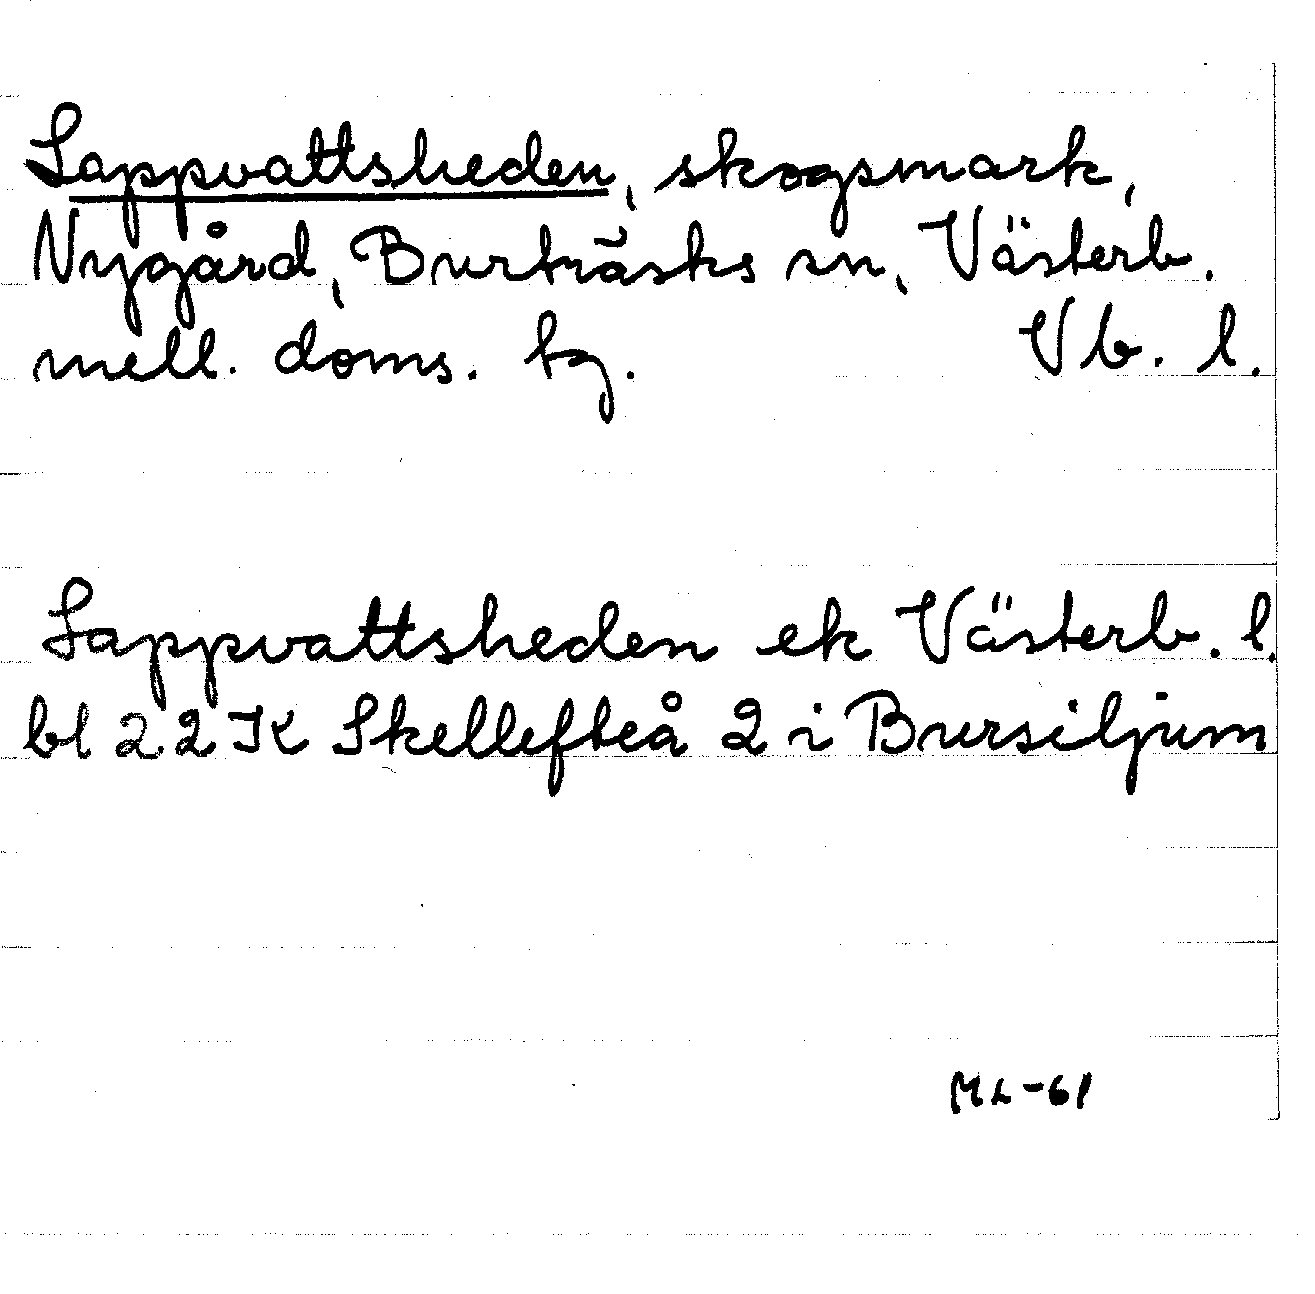 Lappvattsheden, skogsmark,
Nygård, Burträsks sn, Västerb.
mell. doms. tg. Vb. l.
Lappvattsheden ek Västerb. l.
bl 22 K Skellefteå 2 i Bursiljum
ML-61